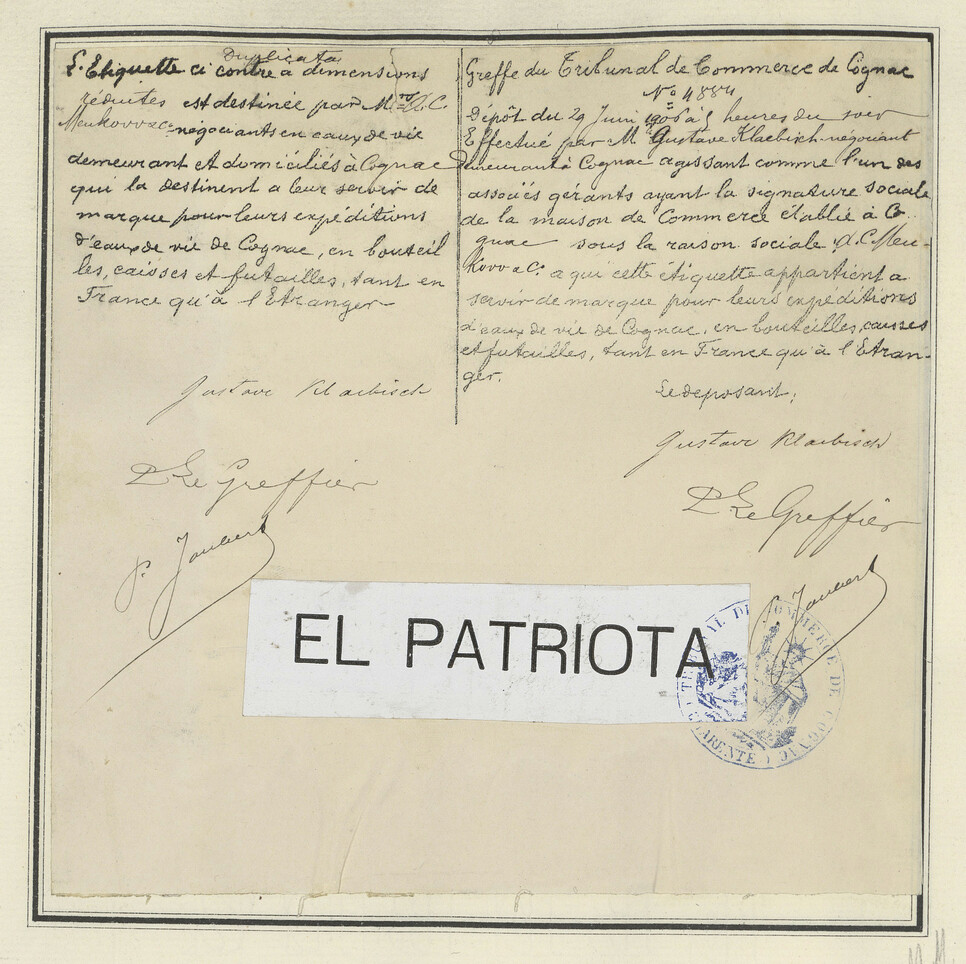 Duplicata
L'Etiquette ci contre a dimensions
réduites est destinée par M.rs A.C.
Meukovv & Cie négociants en eaux de vie
demeurant et domiciliés à Cognac
qui la destinent a leur servir de
marque pour leurs expéditions
d'eaux de vie de Cognac, en bouteil
les, caisses et futailles, tant en
France qu'à l'Etranger
Gustave Klaebisch
Le Greffier
P. Jaubert
Greffe du Tribunal de Commerce de Cognac
No 4884
Dépôt du 29 Juin 1906 à 5 heures du soir
Effectué par M. Gustave Klaebisch négociant
demeurant à Cognac agissant comme l'un des
associés gérants ayant la signature sociale
de la maison de Commerce établie à Co
gnac sous la raison sociale A.C. Meu-
kovv & Cie a qui cette étiquette appartient a
servir de marque pour leurs expéditions
d'eaux de vie de Cognac, en bouteilles, caisses
et futailles, tant en France qu'à l'Etran-
ger.
Le déposant,
Gustave Klaebisch
Le Greffier
P. Jaubert
EL PATRIOTA
TRIBUNAL DE COMMERCE DE COGNAC
CHARENTE
M.M.